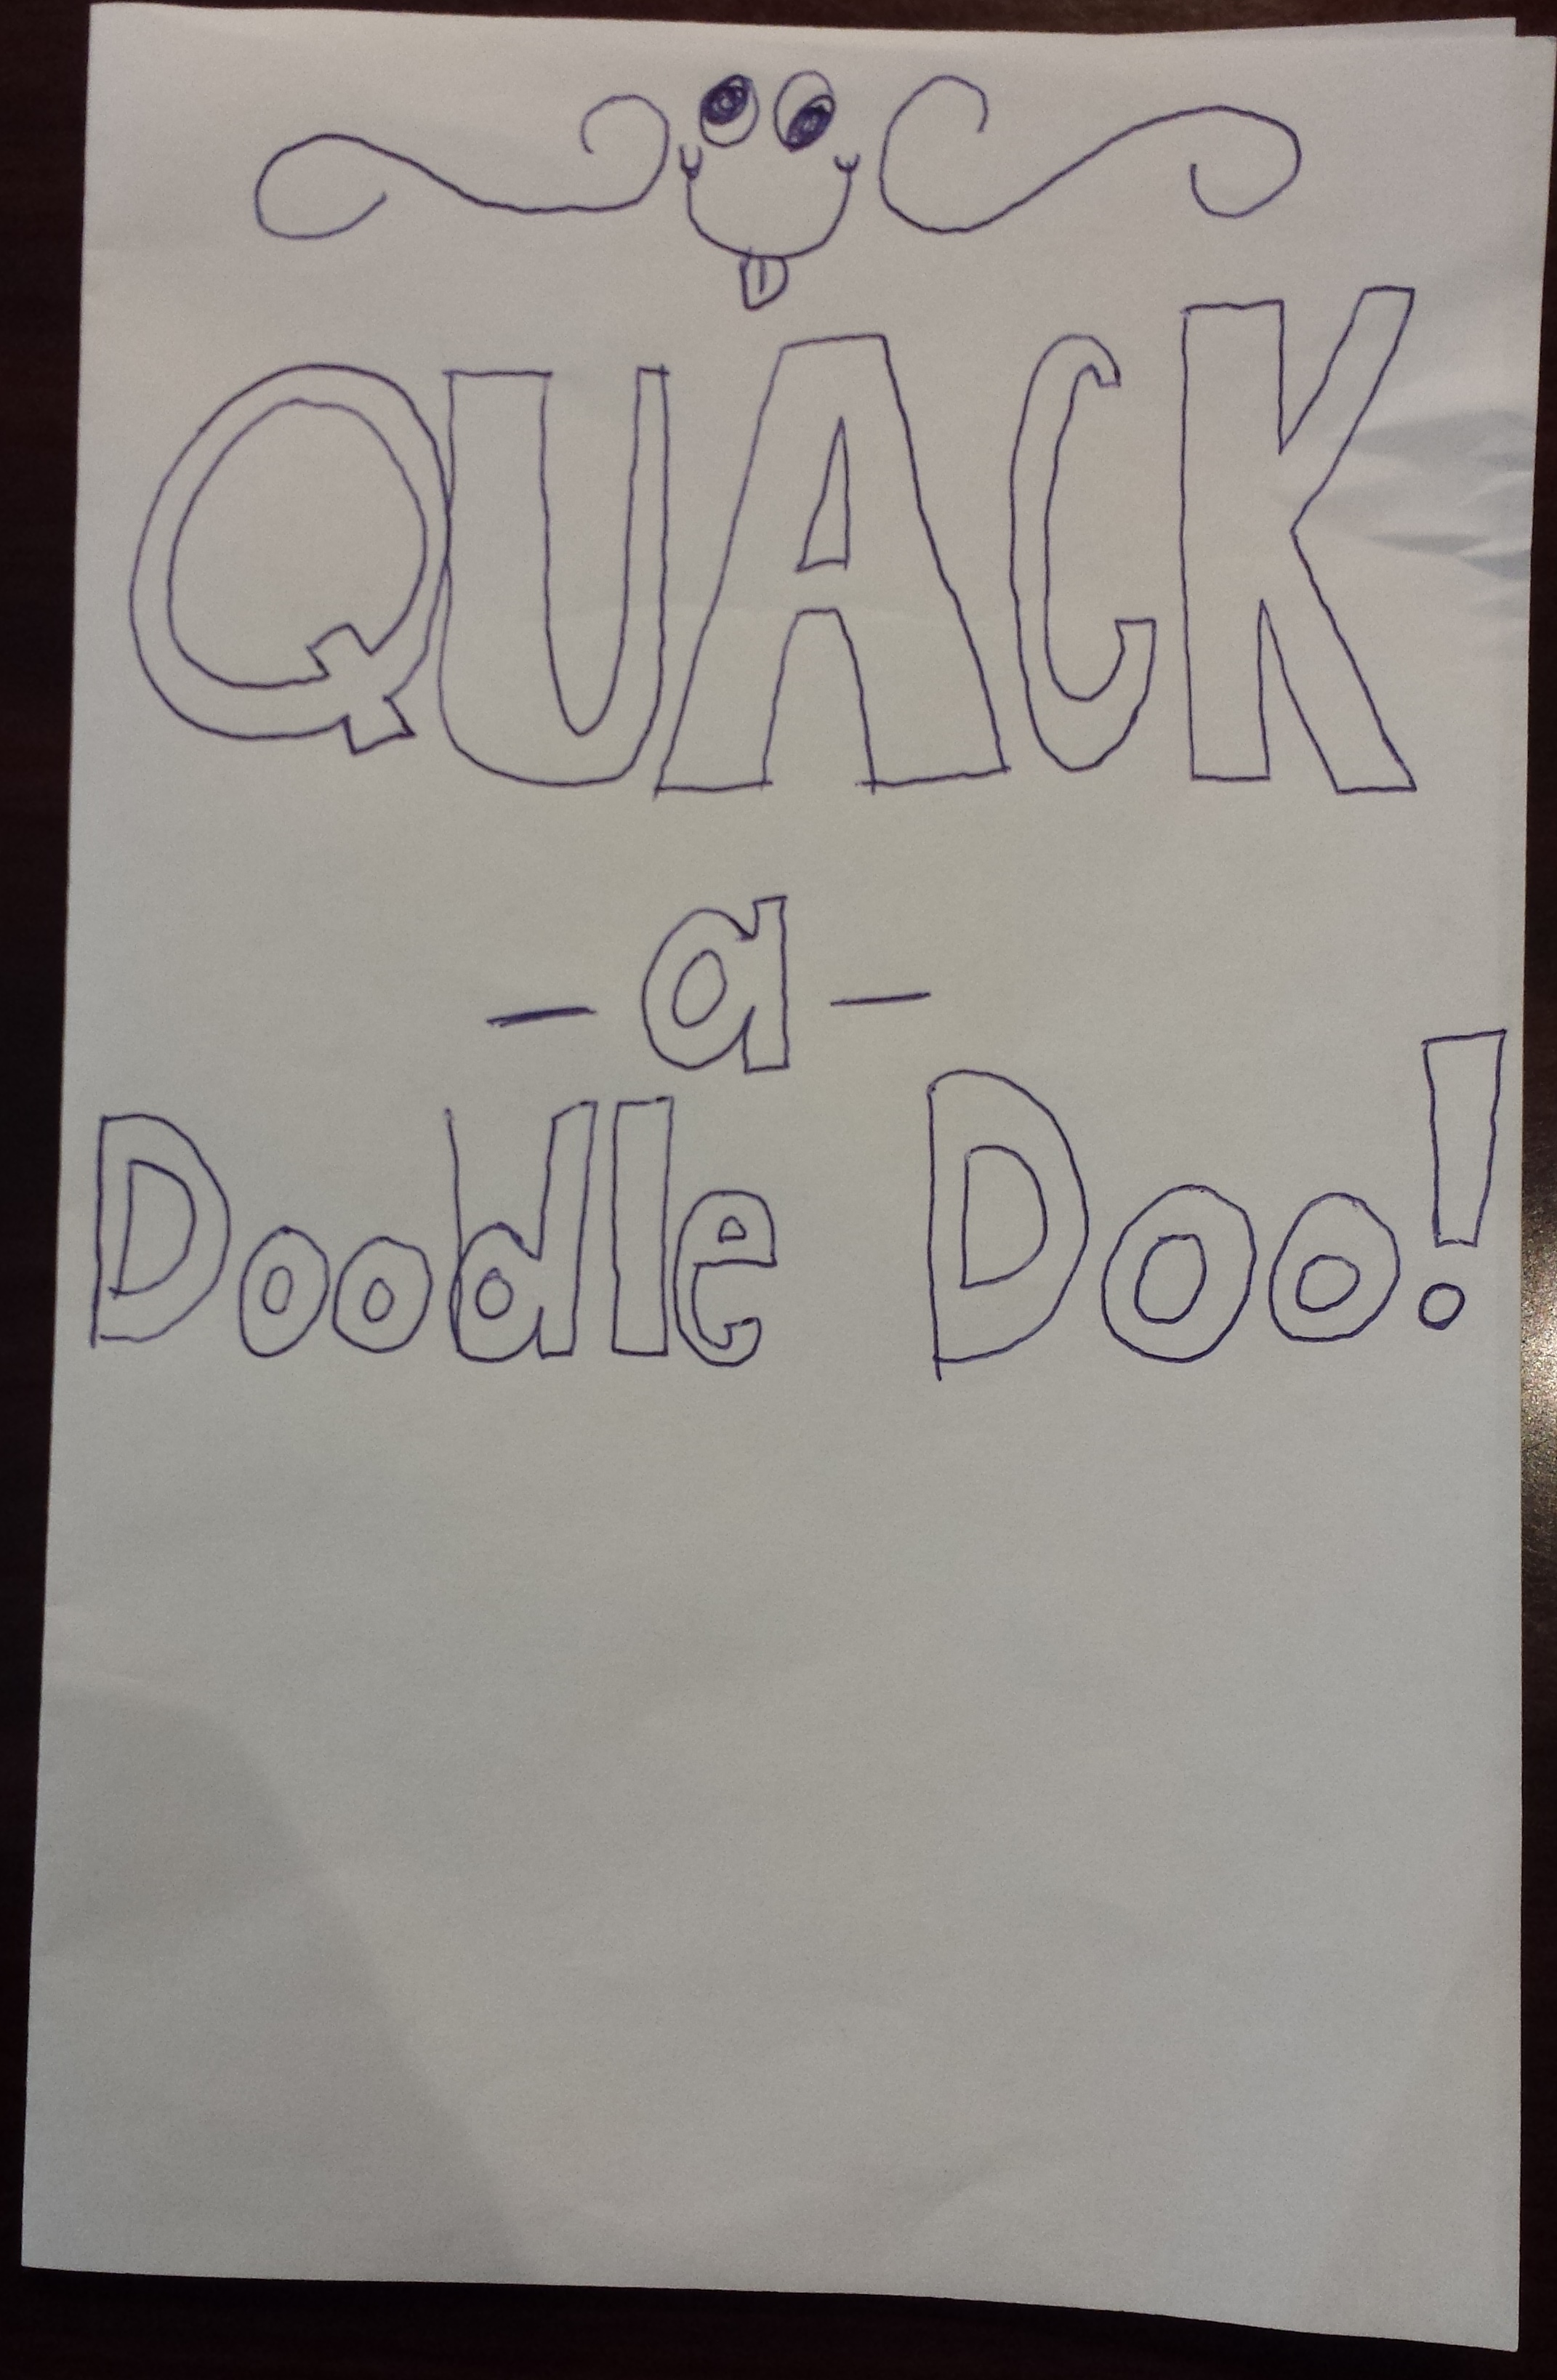 QUACK
-a-
Doodle Doo!